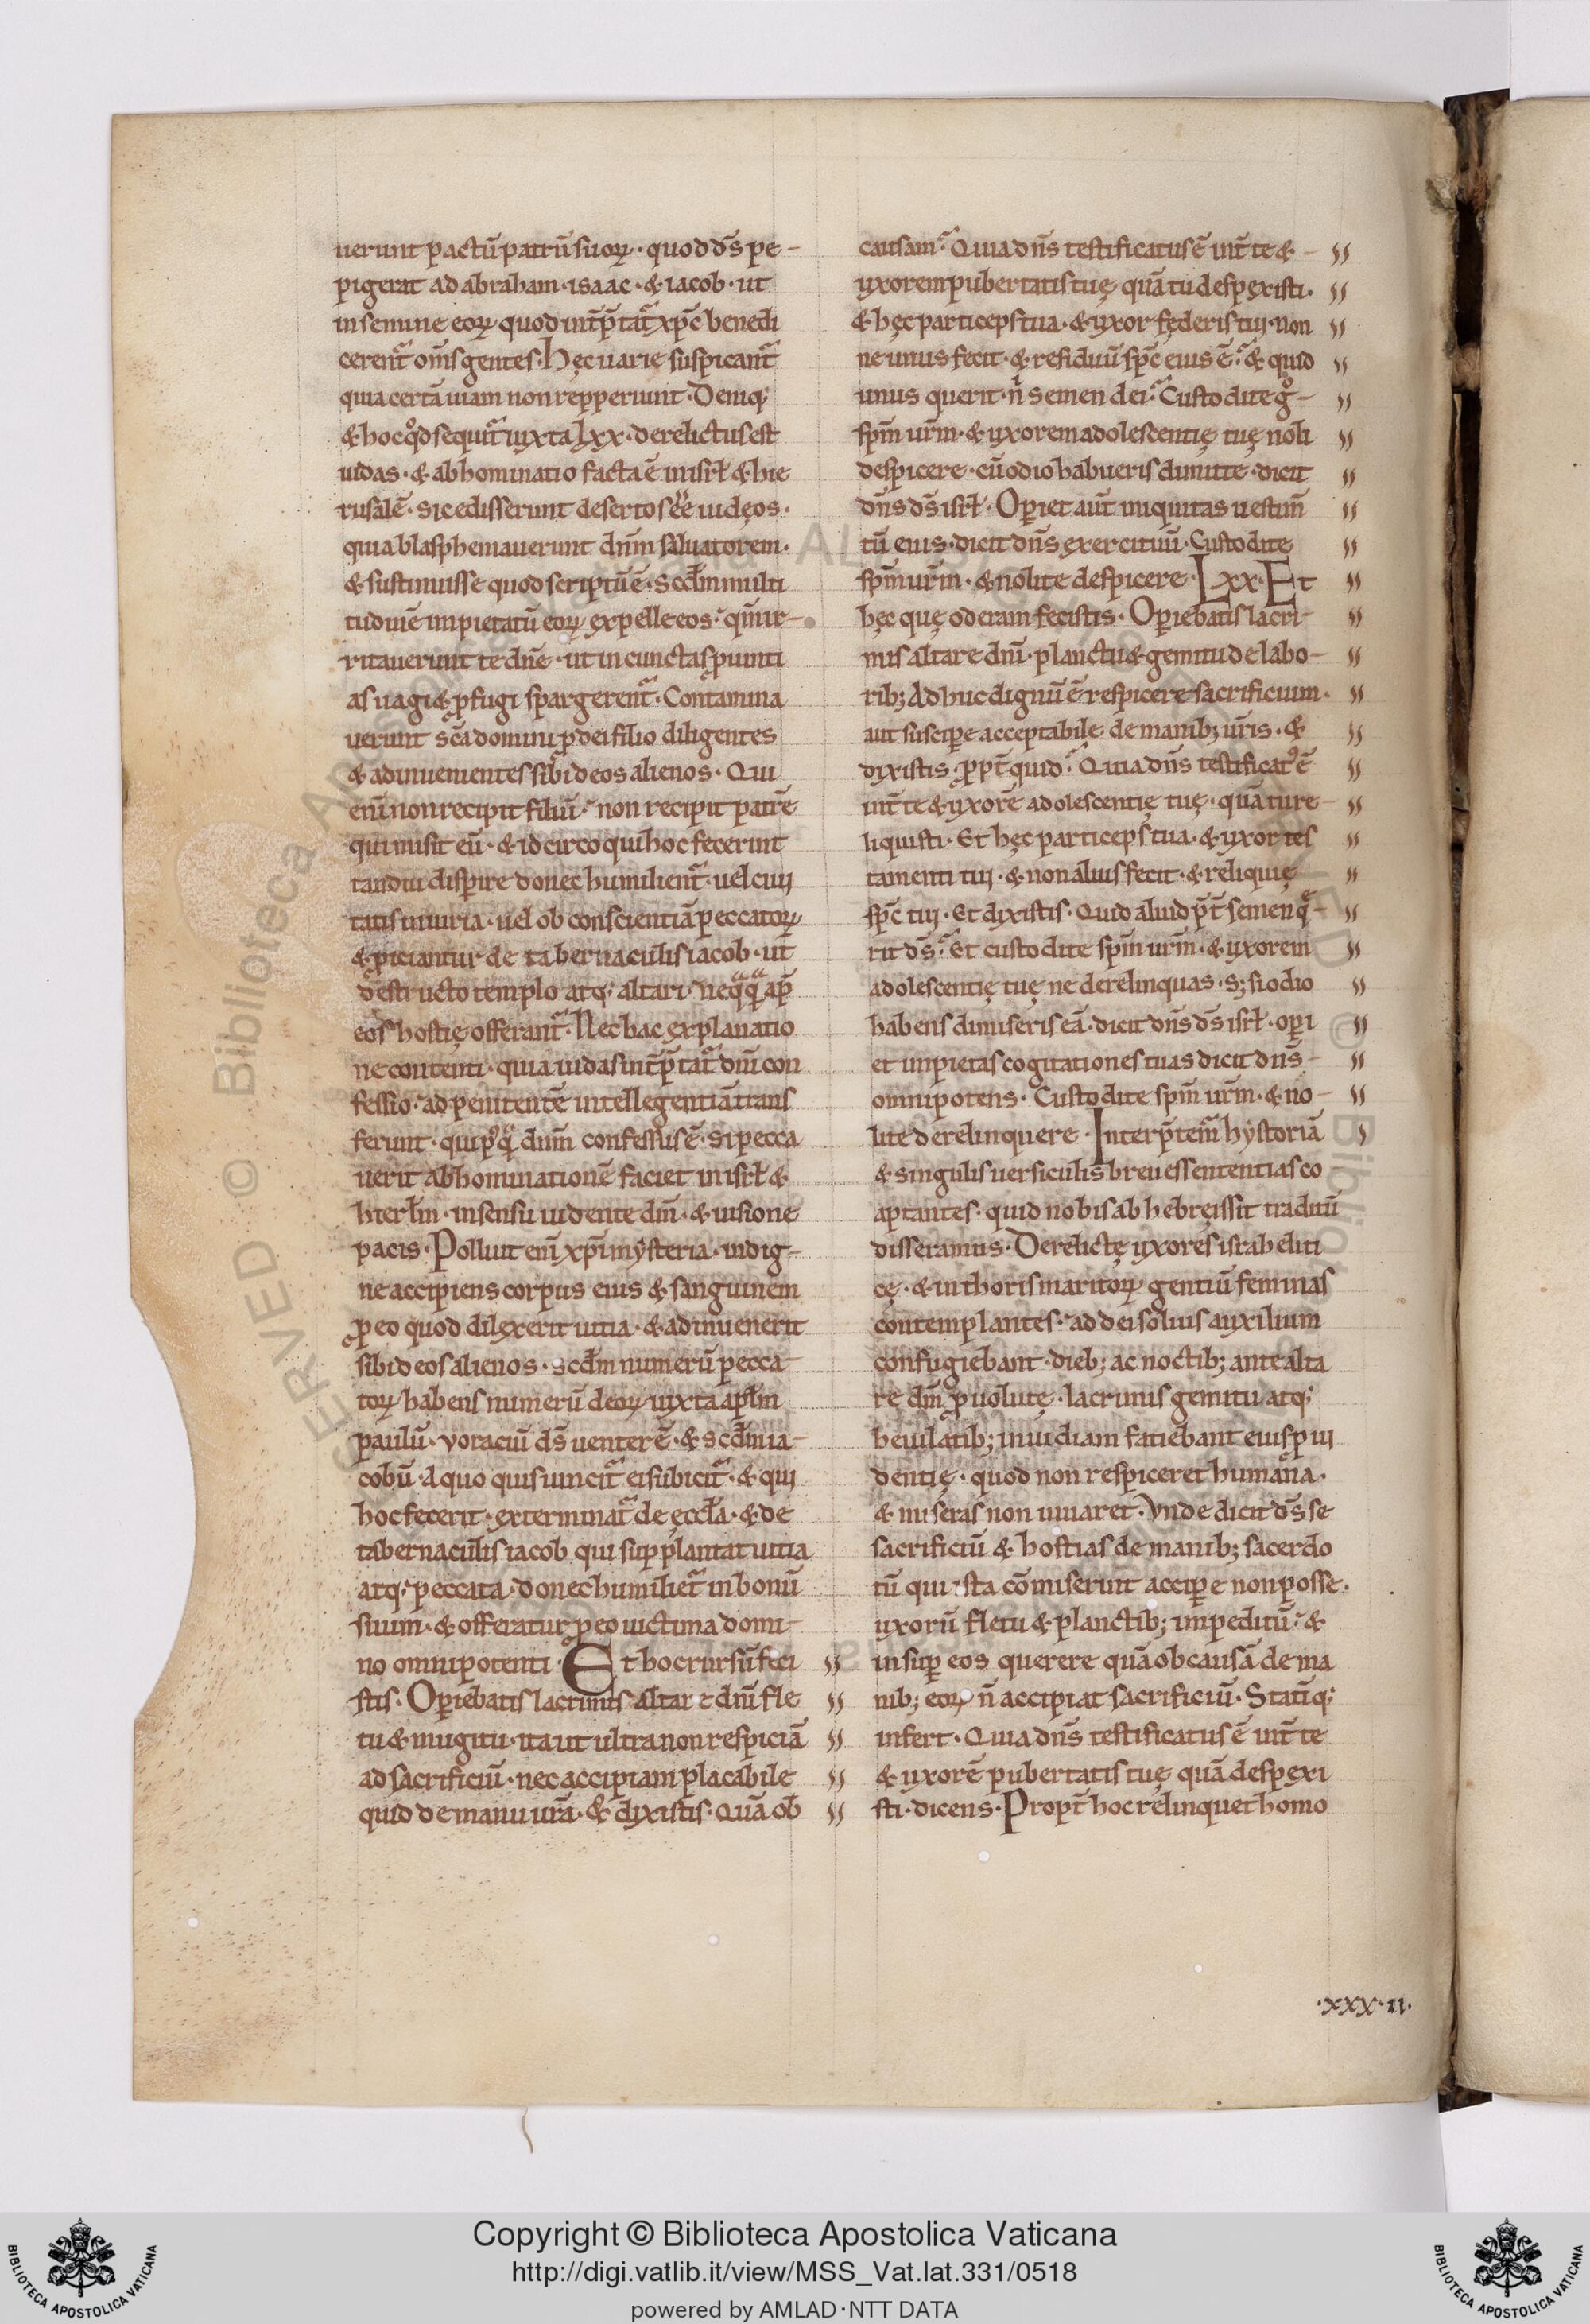 uerunt pactū patrū suoꝝ · quod ds̄ pe-
pigerat ad abraham · isaac · & iacob · ut
in semine eoꝝ quod int̄p̄tat᷑ xp̄c benedi
cerent᷑ om̄s gentes · Hęc uarie suspicant᷑
quia certā uiam non repperiunt · Deniq;
& hoc qd̊ sequit᷑ iuxta lxx · derelictus est
iudas · & abhominatio facta ē in isrl̄ & hie
rusalē · sic edisserunt desertos eē iudęos ·
quia blasphemauerunt dn̄m saluatorem ·
& sustinuisse quod scriptū ē · Scdm̄ multi
tudinē impietatū eoꝝ expelle eos · qm̄ ir-
ritauerunt te dn̄e · ut in cunctas ꝓuinti
as uagi & ꝓfugi spargerent᷑ · Contamina
uerunt sc̄a domini ꝓ dei filio diligentes
& adinuenientes sibi deos alienos · Qui
enī non recipit filiū · non recipit patrē
qui misit eū · & idcirco qui hoc fecerint
tandiu disꝑire donec humilient᷑ · uel cuij
tatis iniuria · uel ob conscientiā peccatoꝝ
& ꝓiciantur de tabernaculis iacob · ut
destructo templo atq; altari · neqͣqͣ ap̄
eos hostię offerant᷑ · Nec hac explanatio
ne contenti · quia iudas int̄p̄tat᷑ dn̄i con
fessio · ad penitentē intellegentiā trans
ferunt · qui p̊qͣ dn̄m confessus ē · si pecca
uerit abhominationē faciet in isrl̄ &
hierl̄m · in sensu uidente dn̄m · & uisione
pacis · Polluit em̄ xp̄i mẏsteria · indig-
ne accipiens corpus eius & sanguinem
ꝓ eo quod dilexerit uitia · & adinuenerit
sibi deos alienos · scdm̄ numerū pecca-
toꝝ habens numerū deoꝝ iuxta apl̄m
paulū · voraciū ds̄ uenter ē · & scdm̄ ia-
cobū · A quo quis uincit᷑ ei subicit᷑ · & qui
hoc fecerit · exterminat᷑ de ęccl̄a · & de
tabernaculis iacob qui supplantat uitia
atq; peccata · donec humiliet᷑ in bonū
suum · & offeratur ꝓ eo uictima domi-
no omnipotenti · Et hoc rursū feci
stis · Oꝑiebatis lacrimis altare dn̄i fle
tu & mugitu · ita ut ultra non respiciā
ad sacrificiū · nec accipiam placabile
quid de manu ur̄a · & dixistis · Quā ob
causam · Quia dn̄s testificatus ē int̄ te &-
uxorem pubertatis tuę quā tu despexisti ·
& hęc particeps tua · & uxor fęderis tui · non
ne unus fecit · & residuū sp̄c eius ē · & quid
unus querit · n̄ semen dei · Custodite g̊-
sp̄m ur̄m · & uxorem adolescentię tuę noli
despicere · cū odio habueris dimitte · dicit
dn̄s ds̄ isrl̄ · Oꝑiet aūt iniquitas uestim̄
tū eius · dicit dn̄s exercituū · Custodite
sp̄m ur̄m · & nolite despicere · Lxx · Et
hęc quę oderam fecistis · Oꝑiebatis lacri-
mis altare dn̄i · planctu & gemitu de labo-
rib; Adhuc dignū ē respicere sacrificium ·
aut susciꝑe acceptabile de manib; ur̄is · &
dixistis · ꝓpt̄ quid · Quia dn̄s testificatꝰ ē
int̄ te & uxorē adolescentię tuę · quā tu re-
liquisti · Et hęc particeps tua · & uxor tes
tamenti tui · & non alius fecit · & reliquię
sp̄c tui · Et dixistis · Quid aliud p̄t̄ semen qͣ-
rit ds̄ · Et custodite sp̄m ur̄m · & uxorem
adolescentię tuę ne derelinquas · s; si odio
habens dimiseris eā · dicit dn̄s ds̄ isrl̄ · oꝑi
et impietas cogitationes tuas dicit dn̄s-
omnipotens · Custodite sp̄m ur̄m · & no-
lite derelinquere · Interp̄tem̄ hẏstoriā
& singulis uersiculis breues sententias co
aptantes · quid nobis ab hebręis sit traditū
disseramus · Derelictę uxores israheliti
cę · & in thoris maritoꝝ gentiū feminas
contemplantes · ad dei solius auxilium
confugiebant · dieb; ac noctib; ante alta
re dn̄i ꝓuolutę · lacrimis gemitu atq;
heiulatib; inuidiam fatiebant eius ꝓui
dentię · quod non respiceret humana ·
& miseras non iuuaret · Vnde dicit ds̄ se
sacrificiū & hostias de manib; sacerdo
tū qui ista cōmiserunt acciꝑe non posse ·
uxorū fletu & planctib; impeditū · &
insuꝑ eos querere quā ob causā de ma
nib; eoꝝ n̄ accipiat sacrificiū · Statīq;
infert · Quia dn̄s testificatus ē int̄ te
& uxorē pubertatis tuę quā despexi
sti · dicens · Propt̄ hoc relinquet homo
·xxx·ii·
Copyright © Biblioteca Apostolica Vaticana
http://digi.vatlib.it/view/MSS_Vat.lat.331/0518
powered by AMLAD·NTT DATA
BIBLIOTECA APOSTOLICA VATICANA
BIBLIOTECA APOSTOLICA VATICANA